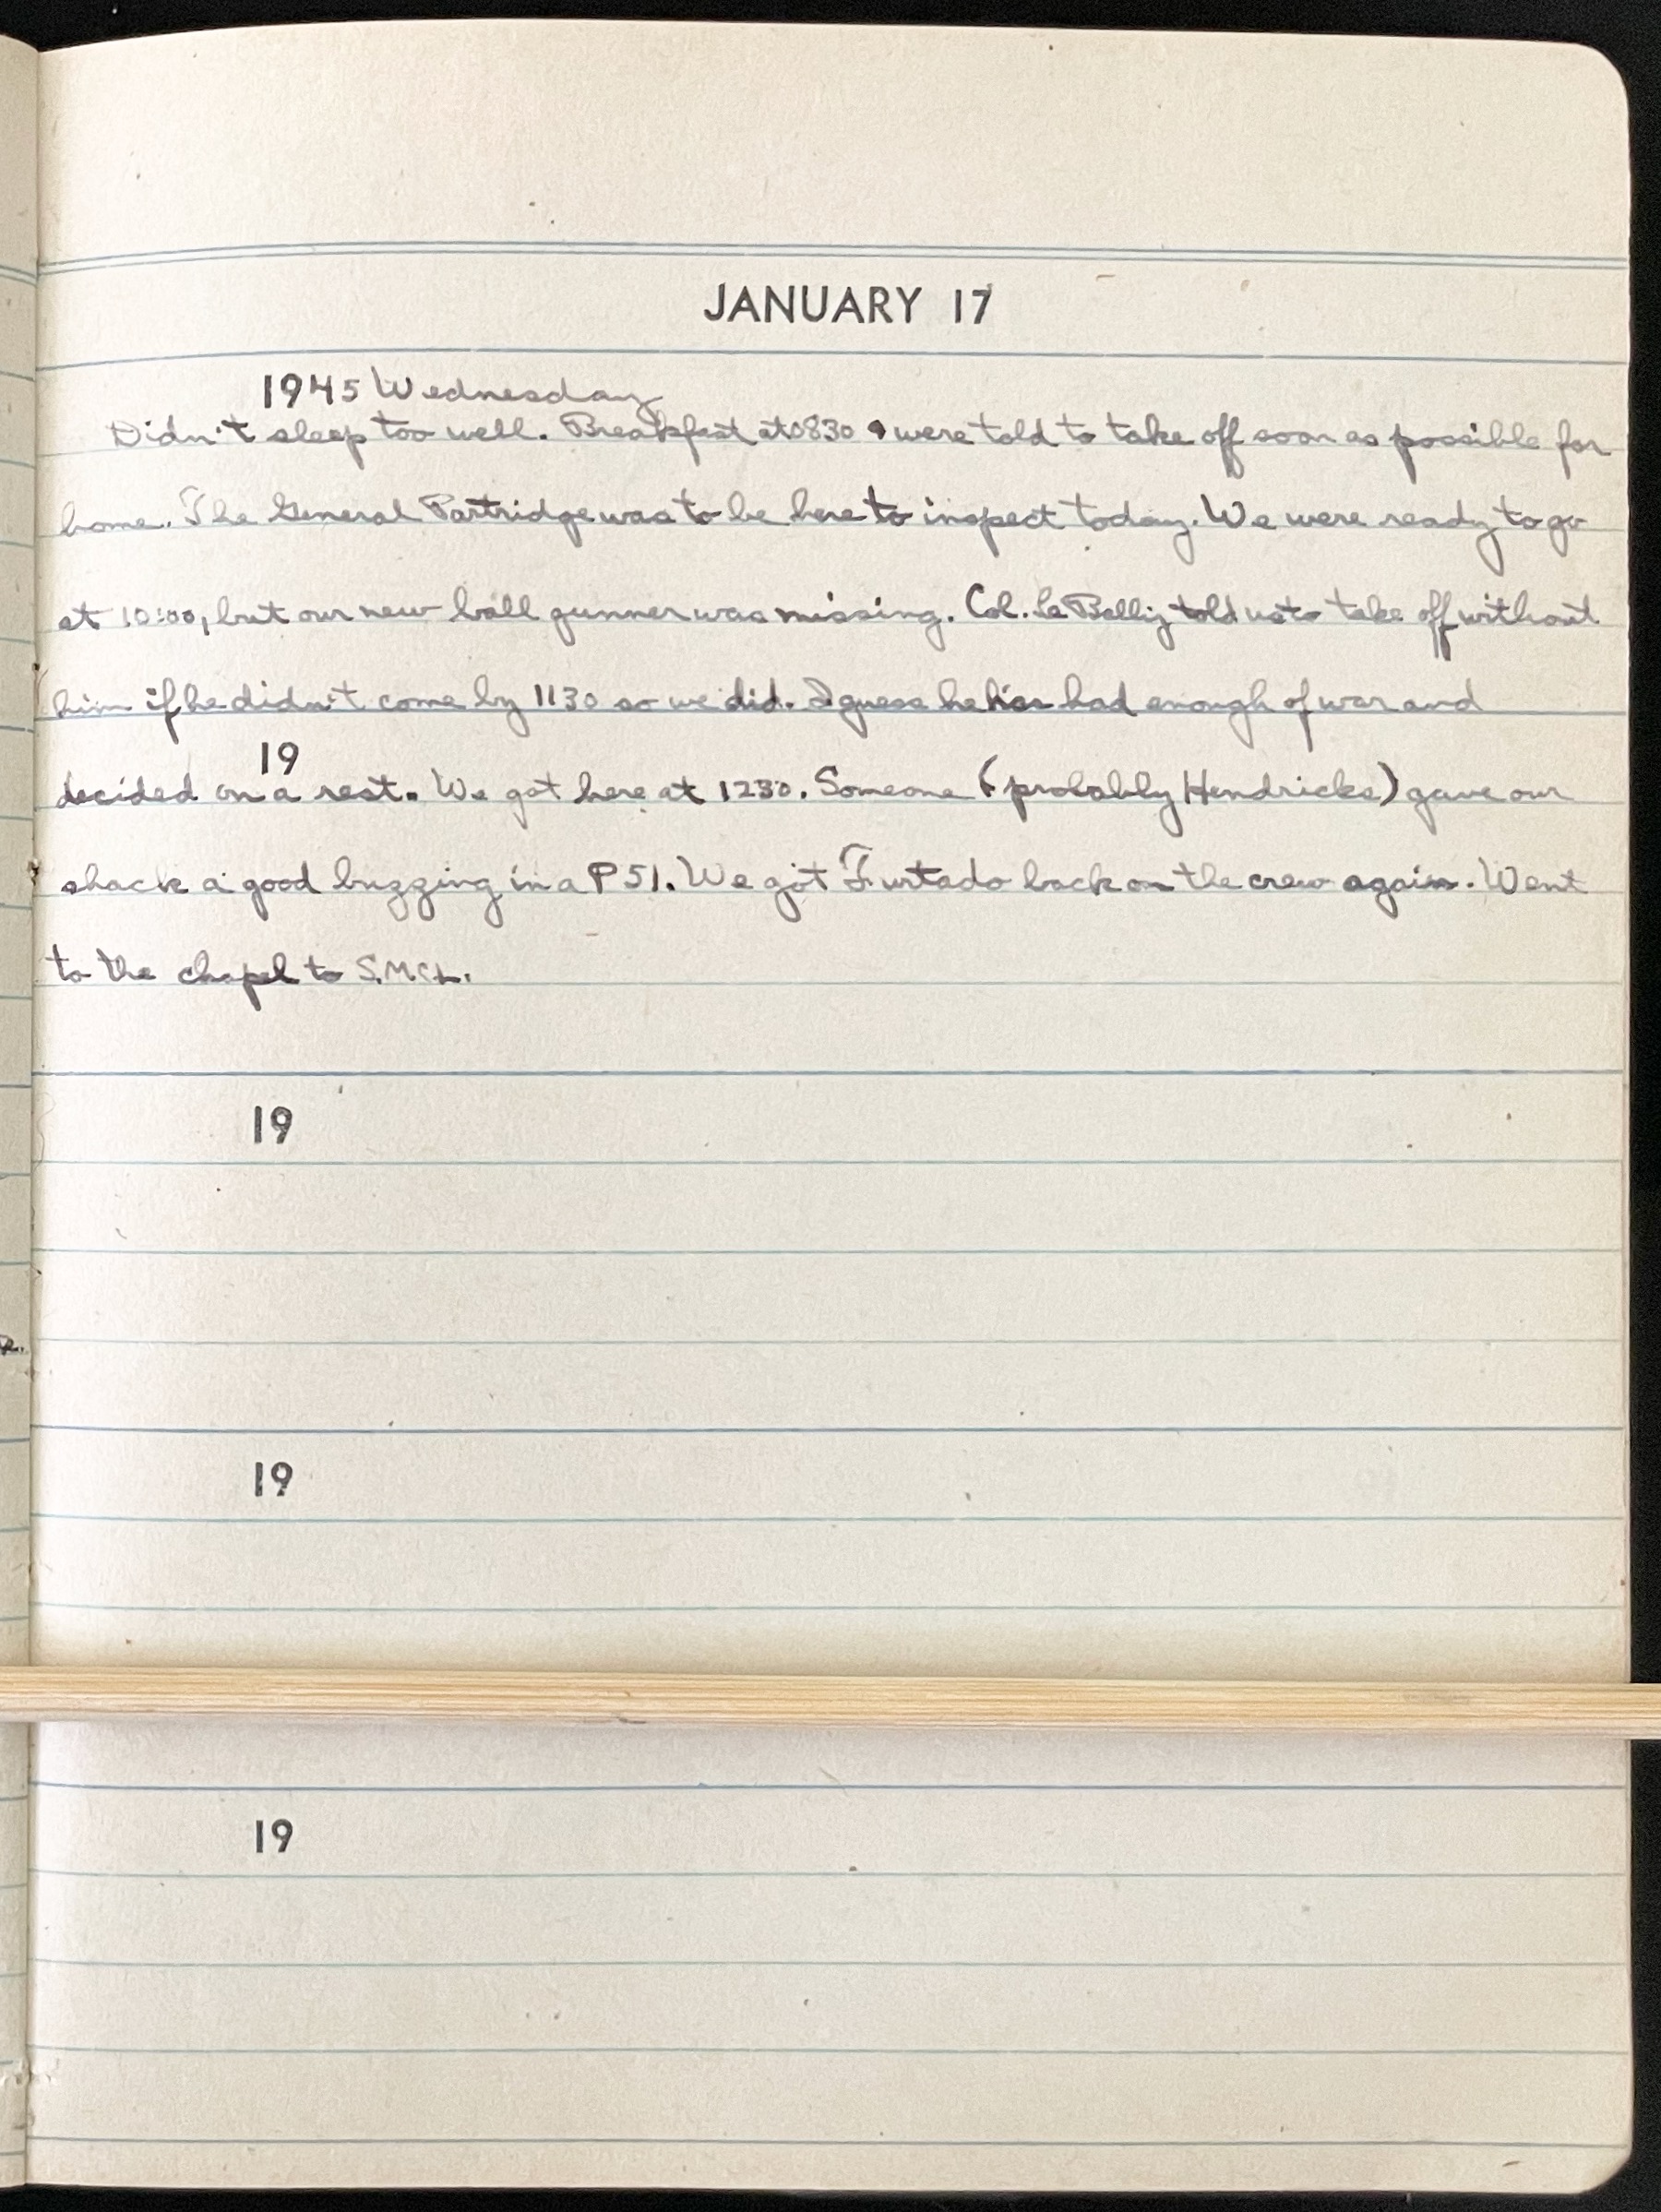 JANUARY 17
1945 Wednesday
Didn't sleep too well. Breakfast at 0830 & were told to take off soon as possible for
home. The General Partridge was to be here to inspect today. We were ready to go
at 10:00, but our new ball gunner was missing. Col. told us to take off without
him if he didn't come by 1130 so we did. I guess he has had enough of war and
19
decided on a rest. We got here at 1230. Someone (probably Hendricks) gave our
shack a good buzzing in a P51. We got Furtado back on the crew again. Went
to the chapel to S.M.C.L.
19
19
19